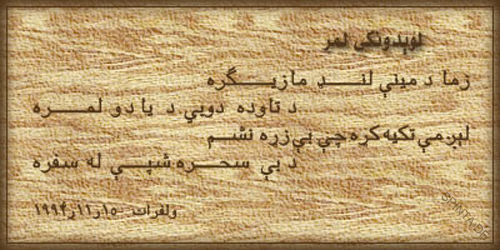 لوېدونکی لمر
زما د مينې لنډ مازيګره
د تاوده دوبي د يادو لمره
لږ مې تکيه کړه چې بې زړه نشم
د بې سحره شپې له سفره
ولفرات ١٥ر١١ر١٩٩٤